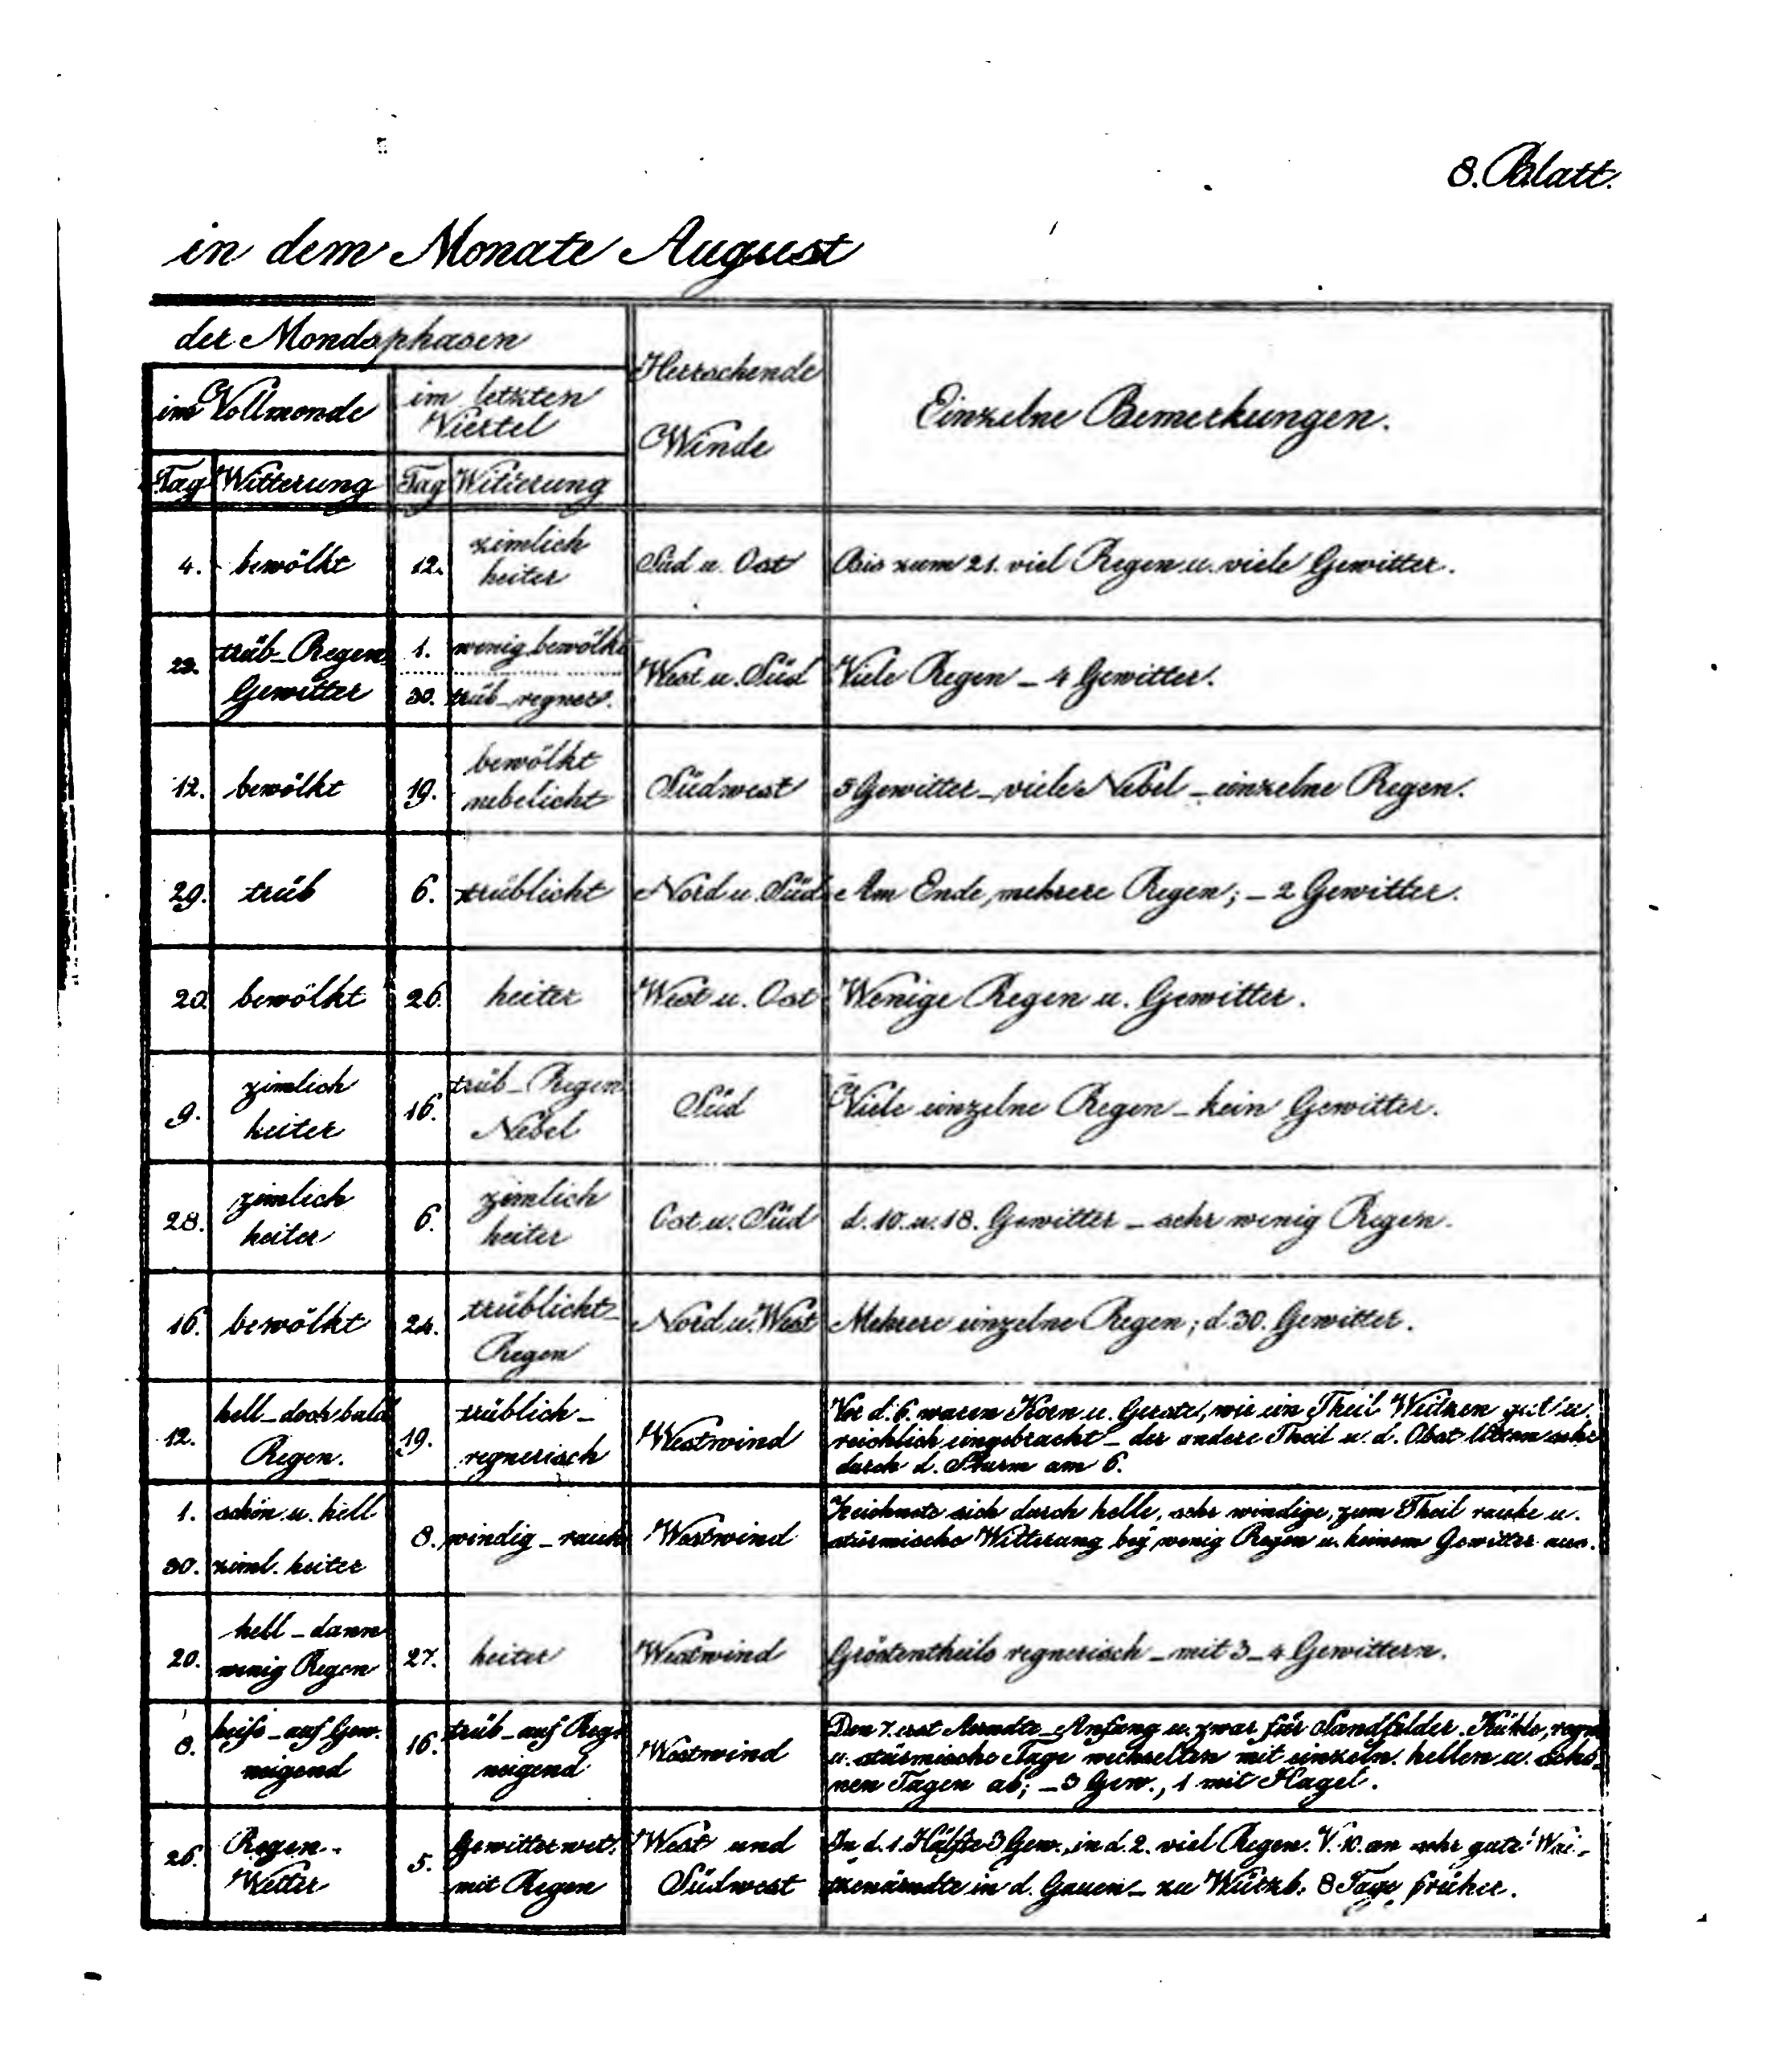 8. Blatt.
in dem Monate August
der Mondsphasen
Herrschende
Winde
Einzelne Bemerkungen.
im Vollmonde
im letzten
Viertel
Tag Witterung Tag Witterung
4. bewölkt 12. zimlich
heiter
Süd u. Ost Bis zum 21. viel Regen u. viele Gewitter.
23. trüb_Regen
Gewitter
1. wenig bewölkt
30. trüb_regner.
West u. Süd Viele Regen _ 4 Gewitter.
12. bewölkt 19. bewölkt
nebelicht
Südwest 5 Gewitter _ viele Nebel _ einzelne Regen.
29. trüb 6. trüblicht Nord u. Süd Am Ende mehrere Regen; _ 2 Gewitter.
20. bewölkt 26. heiter West u. Ost Wenige Regen u. Gewitter.
9. zimlich
heiter
16. trüb _ Regen
Nebel
Süd Viele einzelne Regen _ kein Gewitter.
28. zimlich
heiter
6. zimlich
heiter
Ost u. Süd d. 10. u. 18. Gewitter _ sehr wenig Regen.
16. bewölkt 24. trüblicht_
Regen
Nord u. West Mehrere einzelne Regen; d. 30. Gewitter.
12. hell _ doch bald
Regen.
19. trüblich _
regnerisch
Westwind
Vor d. 6. waren Korn u. Gerste, wie ein Theil Weitzen gut u.
reichlich eingebracht _ der andere Theil u. d. Obst litten sehr
durch d. Sturm am 6.
1. schön u. hell
30. ziml. heiter
8. windig _ rauh Westwind
Zeichnete sich durch helle, sehr windige, zum Theil rauhe u.
stürmische Witterung bey wenig Regen u. keinem Gewitter aus.
20. hell _ dann
wenig Regen
27. heiter Westwind Gröstentheils regnerisch _ mit 3 _ 4 Gewittern.
8. heiß _ auf Gew.
neigend
16. trüb _ auf Reg.
neigend
Westwind
Den 7. erst Aerndte _ Anfang u. zwar für Sandfelder. Kühle, regn.
u. stürmische Tage wechselten mit einzeln. hellen u. schö_
nen Tagen ab; _ 3 Gew., 1 mit Hagel.
26. Regen _
Wetter
5. Gewitter wet.
mit Regen
West und
Südwest
In d. 1. Hälfte 3 Gew., in d. 2. viel Regen. V. 10. an sehr gute Wai_
zenärndte in d. Gauen _ zu Würzb. 8 Tage früher.